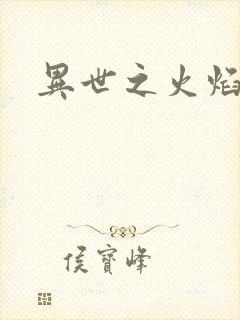 異世之火焰
侯寶峰